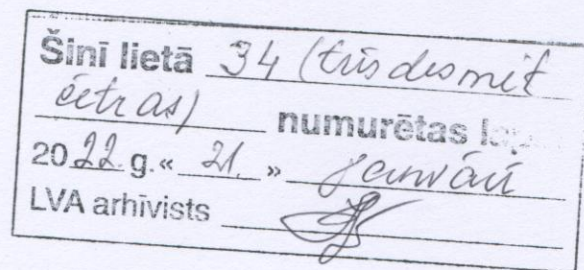 Šinī lietā 34 (trīsdesmit
četras) numurētas
2022. g. « 21. » janvārī
LVA arhīvists